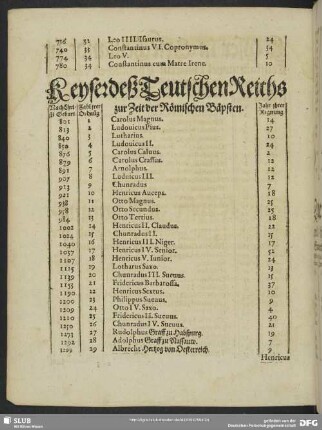 716 32 Leo IIII. Isaurus. 24
740 33 Constantinus VI. Copronymus. 34
774 34 Leo V. 5
780 34 Constantinus cum Matre Irene. 10
Keyser deß Teutschen Reichs
zur Zeit der Römischen Bäpsten.
801 1 Carolus Magnus. 14
813 2 Ludouicus Pius. 27
840 3 Lotharius. 10
4 Ludouicus II.
876 5 Carolus Caluus. 2
6 Carolus Crassus. 12
891 7 Arnolphus. 12
907 8 Ludouicus III. 12
913 9 Chunradus 7
921 10 Henricus Auceps. 18
938 11 Otto Magnus. 25
12 Otto Secundus. 25
984 13 Otto Tertius. 18
1002 14 Henricus II. Claudus. 22
1024 15 Chunradus II. 15
1040 16 Henricus III. Niger. 17
1057 17 Henricus IV. Senior. 52
1107 18 Henricus V. Iunior. 24
19 Lotharus Saxo. 13
1139 20 Chunradus III. Sueuus. 15
21 Fridericus Barbarossa. 37
1190 22 Henricus Sextus. 10
1200 23 Philippus Sueuus. 9
1209 24 Otto IV. Saxo. 4
1210 25 Fridericus II. Sueuus. 40
1250 26 Chunradus IV. Sueuus. 21
1273 27 Rudolphus Graff zu Habspurg. 19
1292 28 Adolphus Graff zu Nassaw. 7
29 Albrecht Hertzog von Oesterreich. 9
Henricus
SLUB